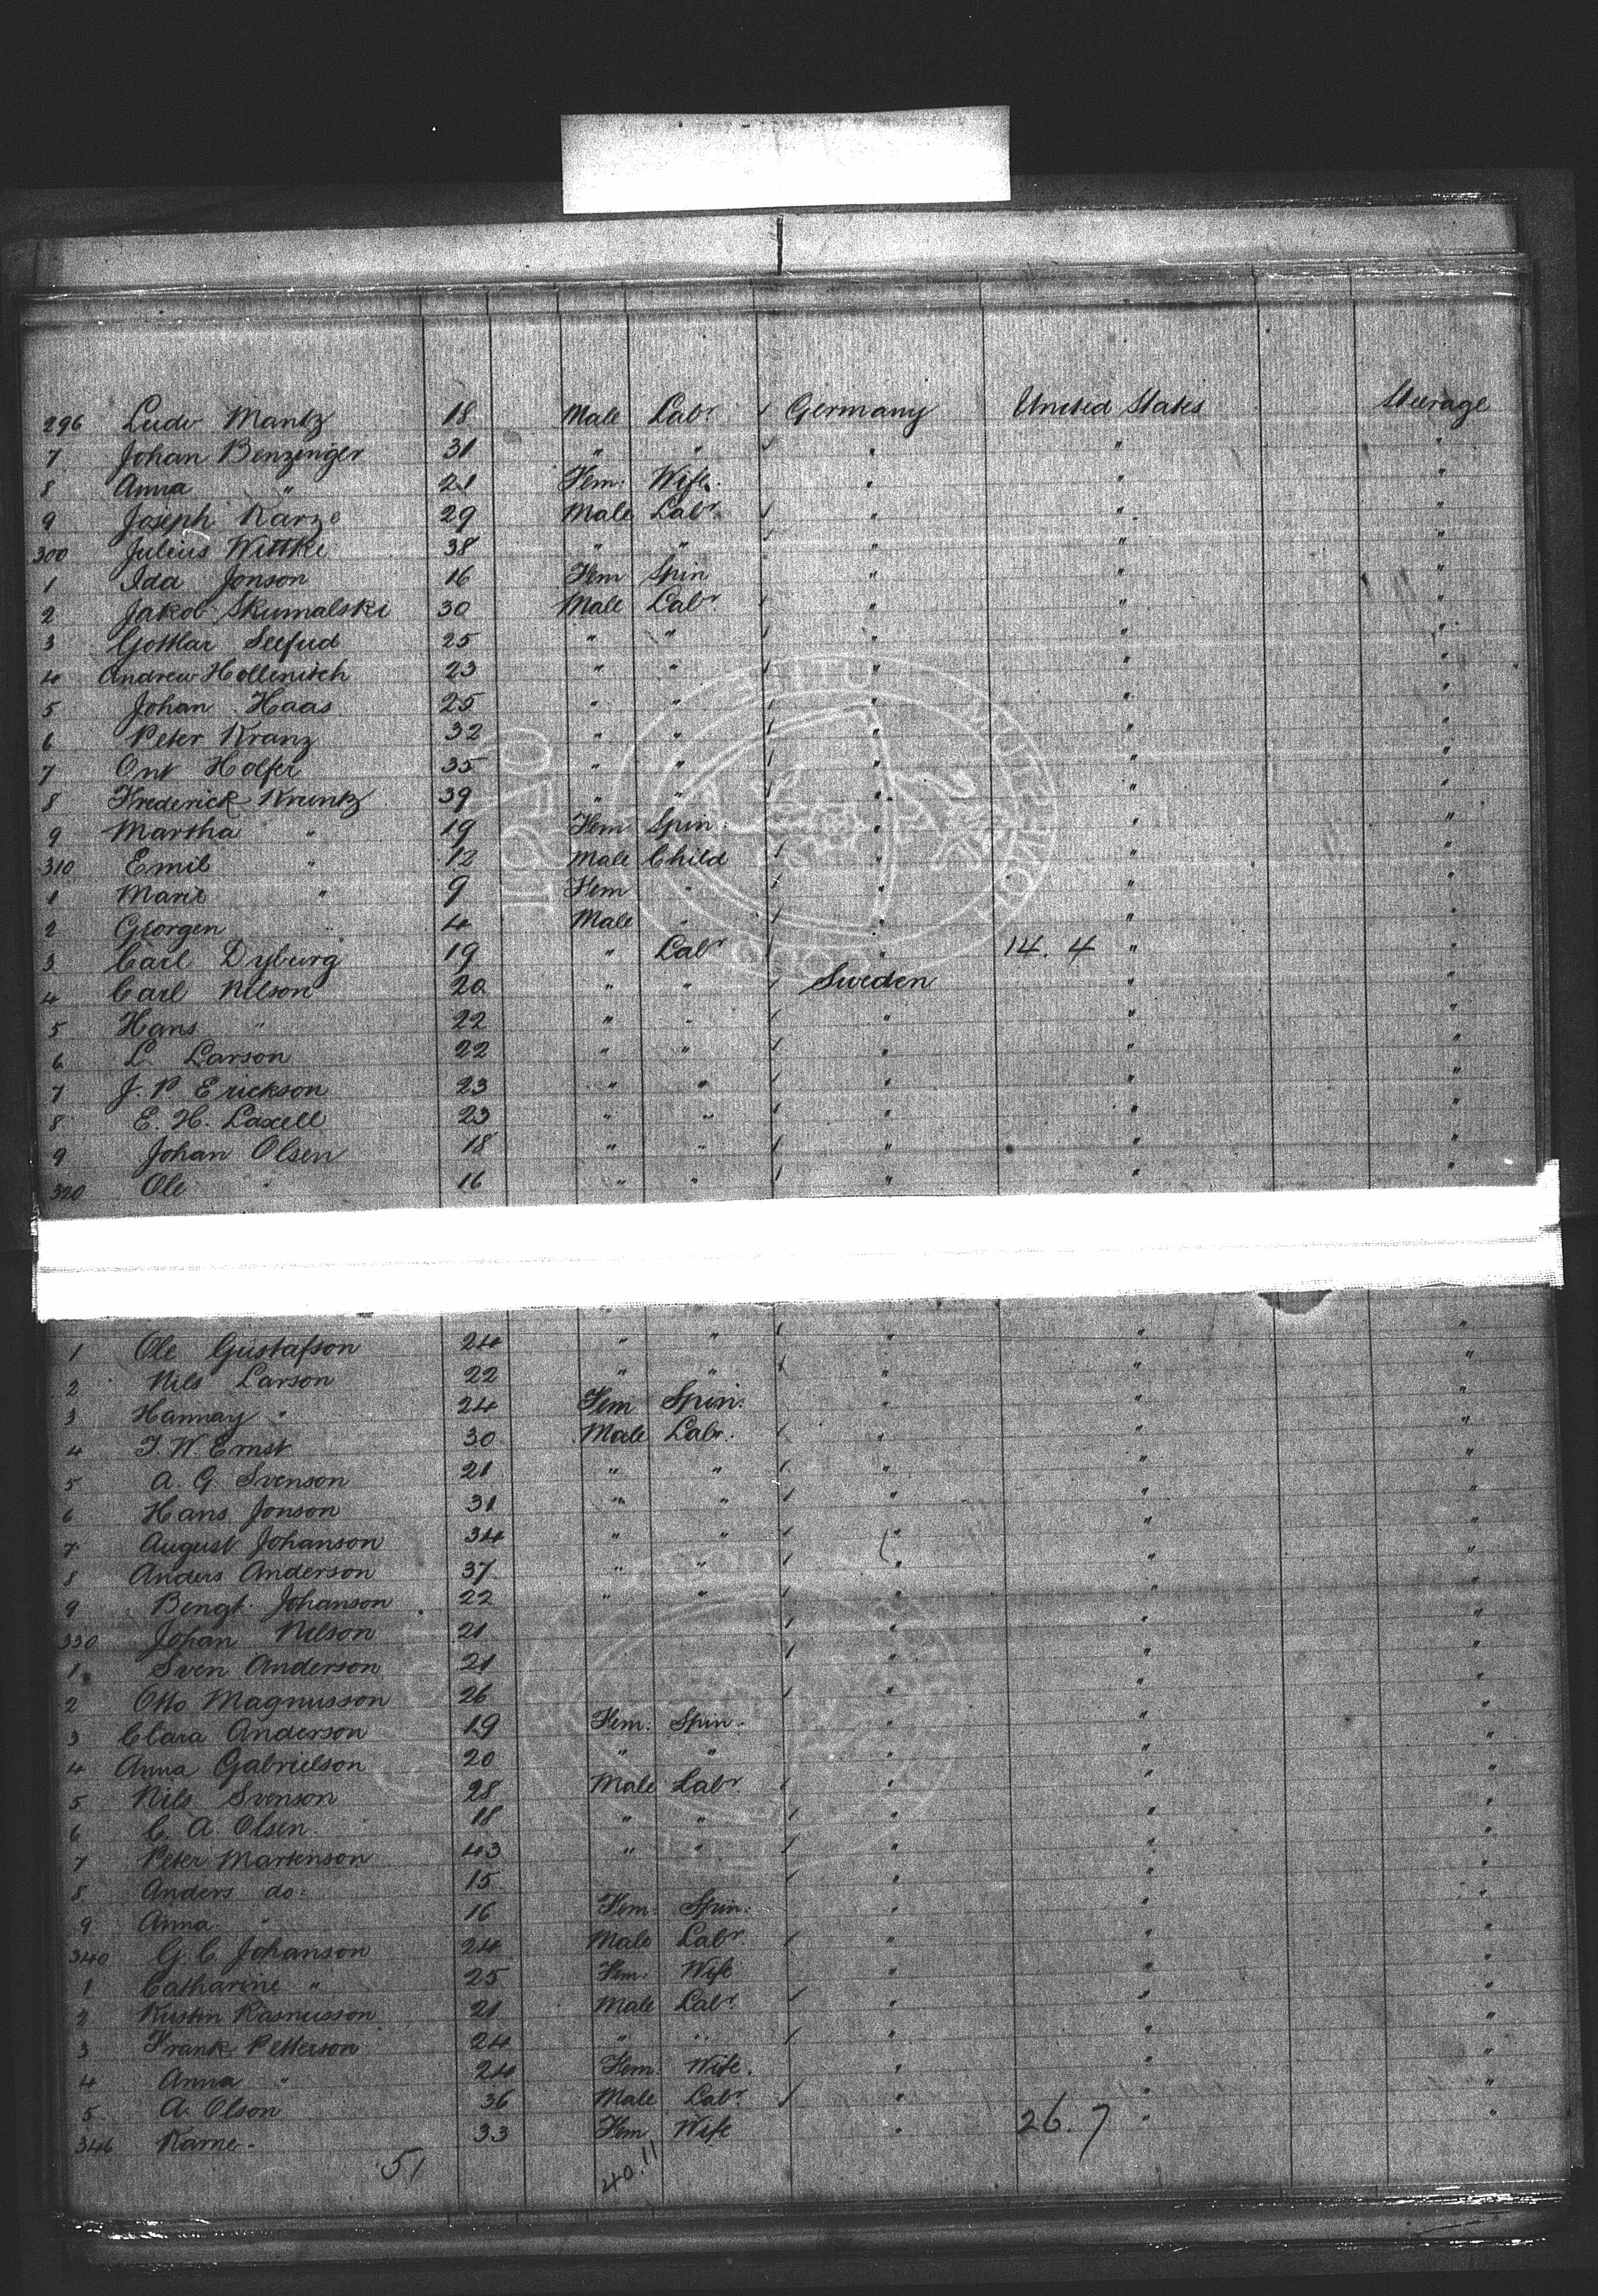 296 Ludw Mantz 18 Male Labr / Germany United States Steerage
7 Johan Benzinger 31 " " / " " "
8 Anna " 21 Fem: Wife. " " "
9 Joseph Karze 29 Male Labr / " " "
300 Julius Wittke 38 " " / " " "
1 Ida Jonson 16 Fem Spin " " "
2 Jakob Skumalski 30 Male Labr. / " " "
3 Gottlar Seefud 25 " " / " " "
4 Andrew Hollenitch 23 " " / " " "
5 Johan Haas 25 " " / " " "
6 Peter Kranz 32 " " / " " "
7 Ont Holfer 35 " " / " " "
8 Frederick Kruntz 39 " " / " " "
9 Martha " 19 Fem Spin: " " "
310 Emil " 12 Male Child / " " "
1 Marie " 9 Fem " / " " "
2 Georgen " 4 Male " / " " "
3 Carl Dyburg 19 " Labr / " 14. 4 " "
4 Carl Nilson 20 " " / Sweden " "
5 Hans " 22 " " / " " "
6 L. Larson 22 " " / " " "
7 J. P. Erickson 23 " " / " " "
8 E. H. Laxell 23 " " / " " "
9 Johan Olsen 18 " " / " " "
320 Ole " 16 " " / " " "
1 Ole Gustafson 24 " " / " " "
2 Nils Larson 22 " " / " " "
3 Hannay " 24 Fem Spin: " " "
4 J. W Ernst 30 Male Labr. / " " "
5 A. G. Svenson 21 " " / " " "
6 Hans Jonson 31 " " / " " "
7 August Johanson 34 " " / " " "
8 Anders Anderson 37 " " / " " "
9 Bengt Johanson 22 " " / " " "
330 Johan Nilson 21 / " " "
1 Sven Anderson 21 / " " "
2 Otto Magnusson 26 / " " "
3 Clara Anderson 19 Fem: Spin. " " "
4 Anna Gabrielson 20 " " " " "
5 Nils Svenson 28 Male Labr / " " "
6 C. A Olsen 18 " " / " " "
7 Peter Martenson 43 " " / " " "
8 Anders do: 15 / " " "
9 Anna " 16 Fem: Spin: " " "
340 G. C. Johanson 24 Male Labr / " " "
1 Catharine " 25 Fem: Wife " " "
2 Kustin Rasmusson 21 Male Labr / " " "
3 Frank Petterson 24 " " / " " "
4 Anna " 24 Fem: Wife. " " "
5 A. Olson 36 Male Labr / " " "
346 Karne - 33 Fem Wife " 26. 7 " "
51 40.11